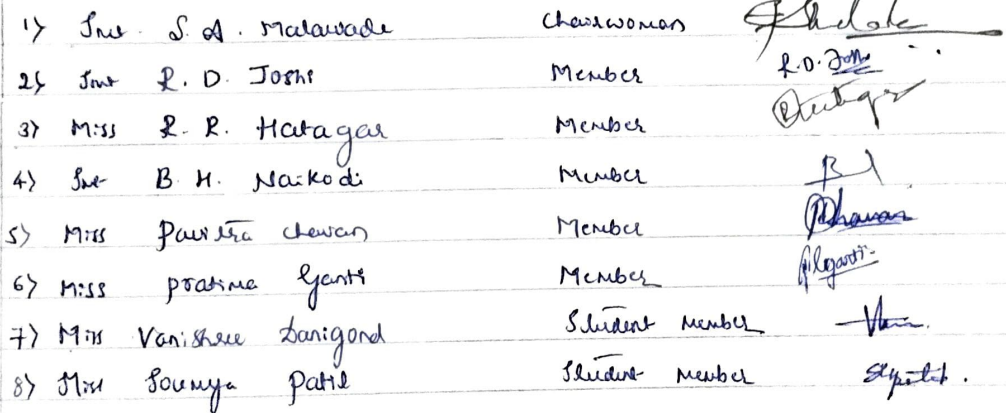 1) Smt. S. A. Malawade Chairwoman
2) Smt R. D. Joshi Member R.D. Joshi
3) Miss R. R. Hatagar Member
4) Smt B. H. Naikodi Member
5) Miss Pavitra Chavan Member
6) Miss Pratima Ganti Member
7) Miss Vanishree Danigond Student Member
8) Miss Soumya Patil Student Member